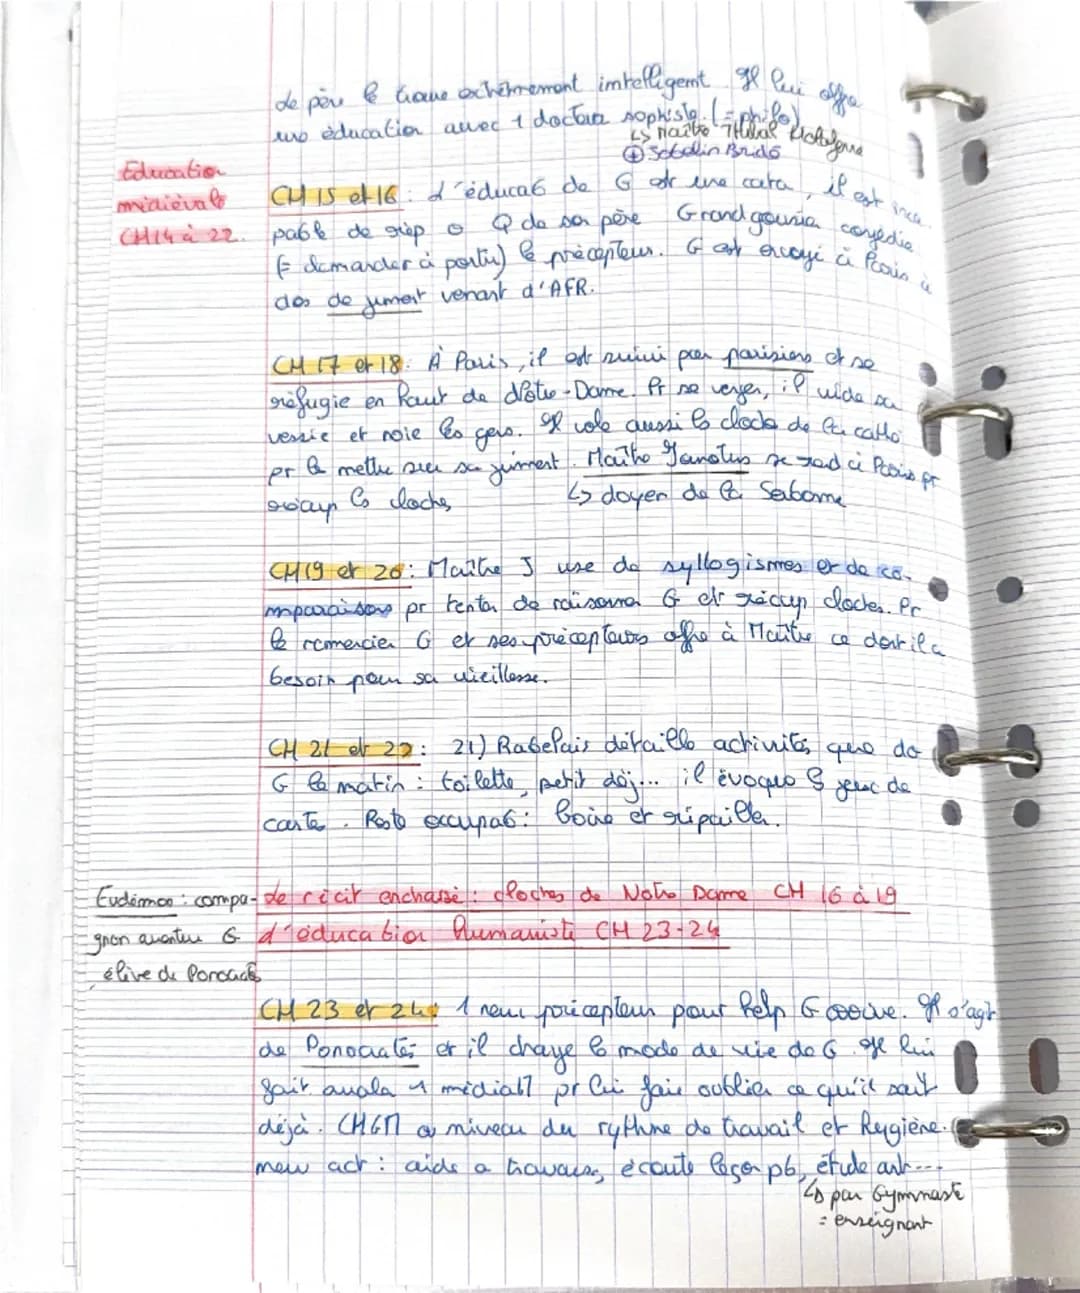 de père le trouve extrêmement intelligent. Il lui offre
une éducation avec 1 docteur sophiste. (= philo)
↳ Maître Thubal Holoferne
⊕ Jobelin Bridé
Education
médiévale
CH14 à 22.
CH 15 et 16 : L'éducat° de G est une cata, il est inca-
pable de rép à Q de son père Grandgousier congédie
(= demander à partir) le précepteur. G est envoyé à Paris à
dos de jument venant d'AFR.
CH 17 et 18 : À Paris, il est suivi par parisiens et se
réfugie en haut de Notre-Dame. Pr se venger, il vide sa
vessie et noie les gens. Il vole aussi les cloches de la cathé
pr les mettre sur sa jument. Maître Janotus se rend à Paris pr
récup les cloches
↳ doyen de la Sorbonne
CH 19 et 20 : Maître J use de syllogismes et de co-
mparaisons pr tenter de raisonner G et récup cloches. Pr
le remercier G et ses précepteurs offre à Maître ce dont il a
besoin pour sa vieillesse.
CH 21 et 22 : 21) Rabelais détaille activités que do
G le matin : toilette, petit déj... il évoque jeux de
carte. Reste occupat° : boire et ripailler.
Eudémon : compa-
gnon aventure G
élève de Ponocrates
Le récit enchassé : cloches de Notre Dame CH 16 à 19
L'éducation humaniste CH 23-24
CH 23 et 24 : 1 nouv précepteur pour help G arrive. Il s'agit
de Ponocrates et il change le mode de vie de G. Il lui
fait avaler 1 médiat° pr lui faire oublier ce qu'il sait
déjà. CHGM a niveau du rythme de travail et hygiène.
new act : aide a travaux, écoute leçon pb, étude art...
↳ par Gymnaste
= enseignant